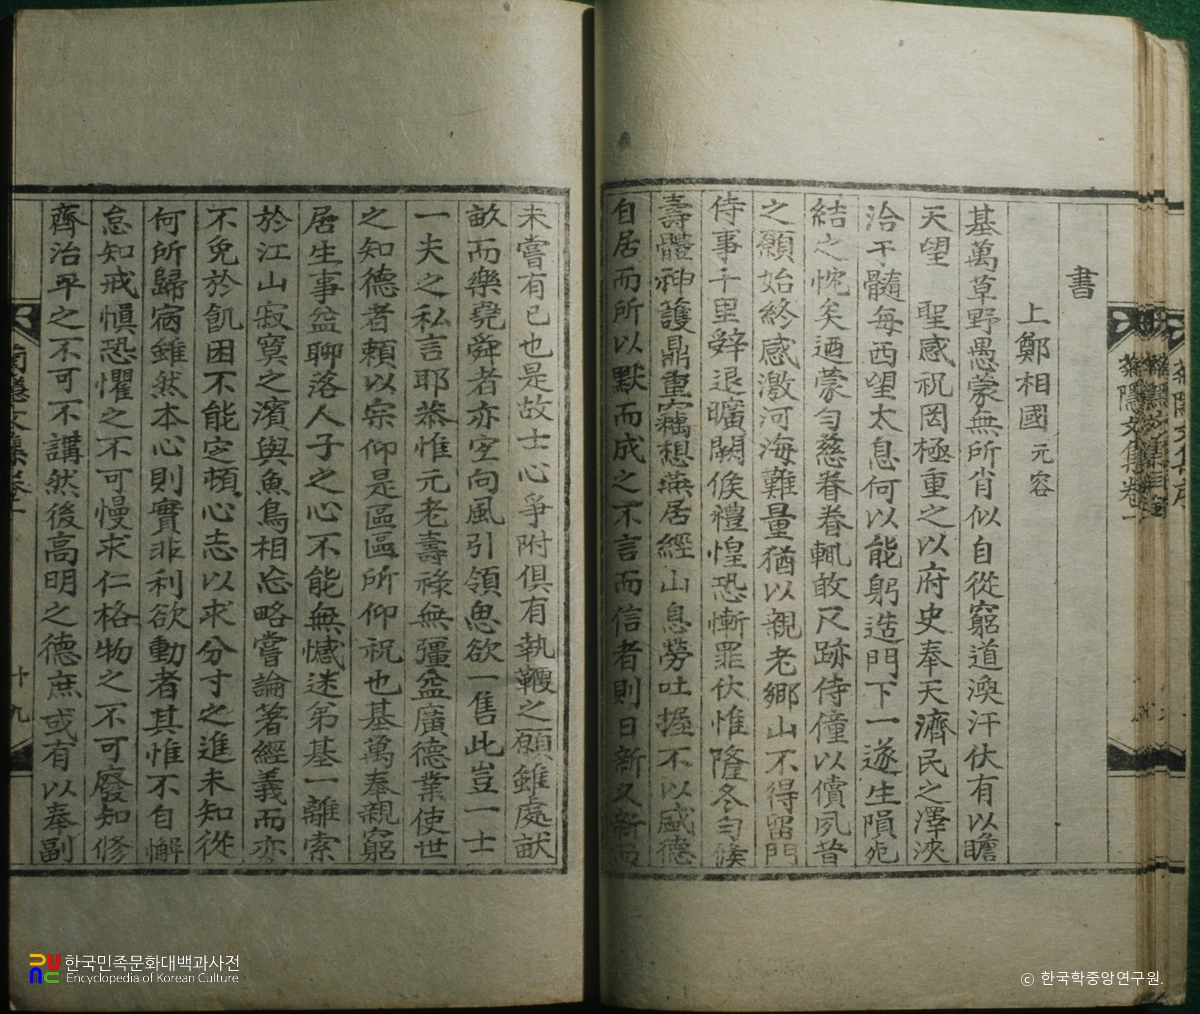 書
上鄭相國 元容
基萬草野愚蒙無所肖似自從窮道渙汗伏有以瞻
天望 聖感祝罔極重之以府史奉天濟民之澤浹
洽于髓每西望太息何以能躬造門下一遂生隕死
結之忱矣迺蒙勻慈眷眷輒敢尺跡侍僮以償夙昔
之願始終感激河海難量猶以親老鄉山不得留門
侍事千里辭退曠闕候禮惶恐慚罪伏惟隆冬勻候
壽體神護鼎重竊想燕居經山息勞吐握不以盛德
自居而所以默而成之不言而信者則日新又新而
未嘗有已也是故士心爭附俱有執鞭之願雖處畎
畝而樂堯舜者亦空向風引領思欲一售此豈一士
一夫之私言耶恭惟元老壽祿無彊益廣德業使世
之知德者賴以宗仰是區區所仰祝也基萬奉親窮
居生事益聊落人子之心不能無憾迷弟基一離索
於江山寂寞之濱與魚鳥相忩略嘗論著經義而亦
不免於飢困不能定頓心志以求分寸之進未知從
何所歸宿雖然本心則實非利欲動者其惟不自懈
怠知戒愼恐懼之不可慢求仁格物之不可廢知修
齊治平之不可不講然後高明之德庶或有以奉副
隱文集卷一
十九
隱文集卷一
한국민족문화대백과사전
Encyclopedia of Korean Culture
ⓒ 한국학중앙연구원.